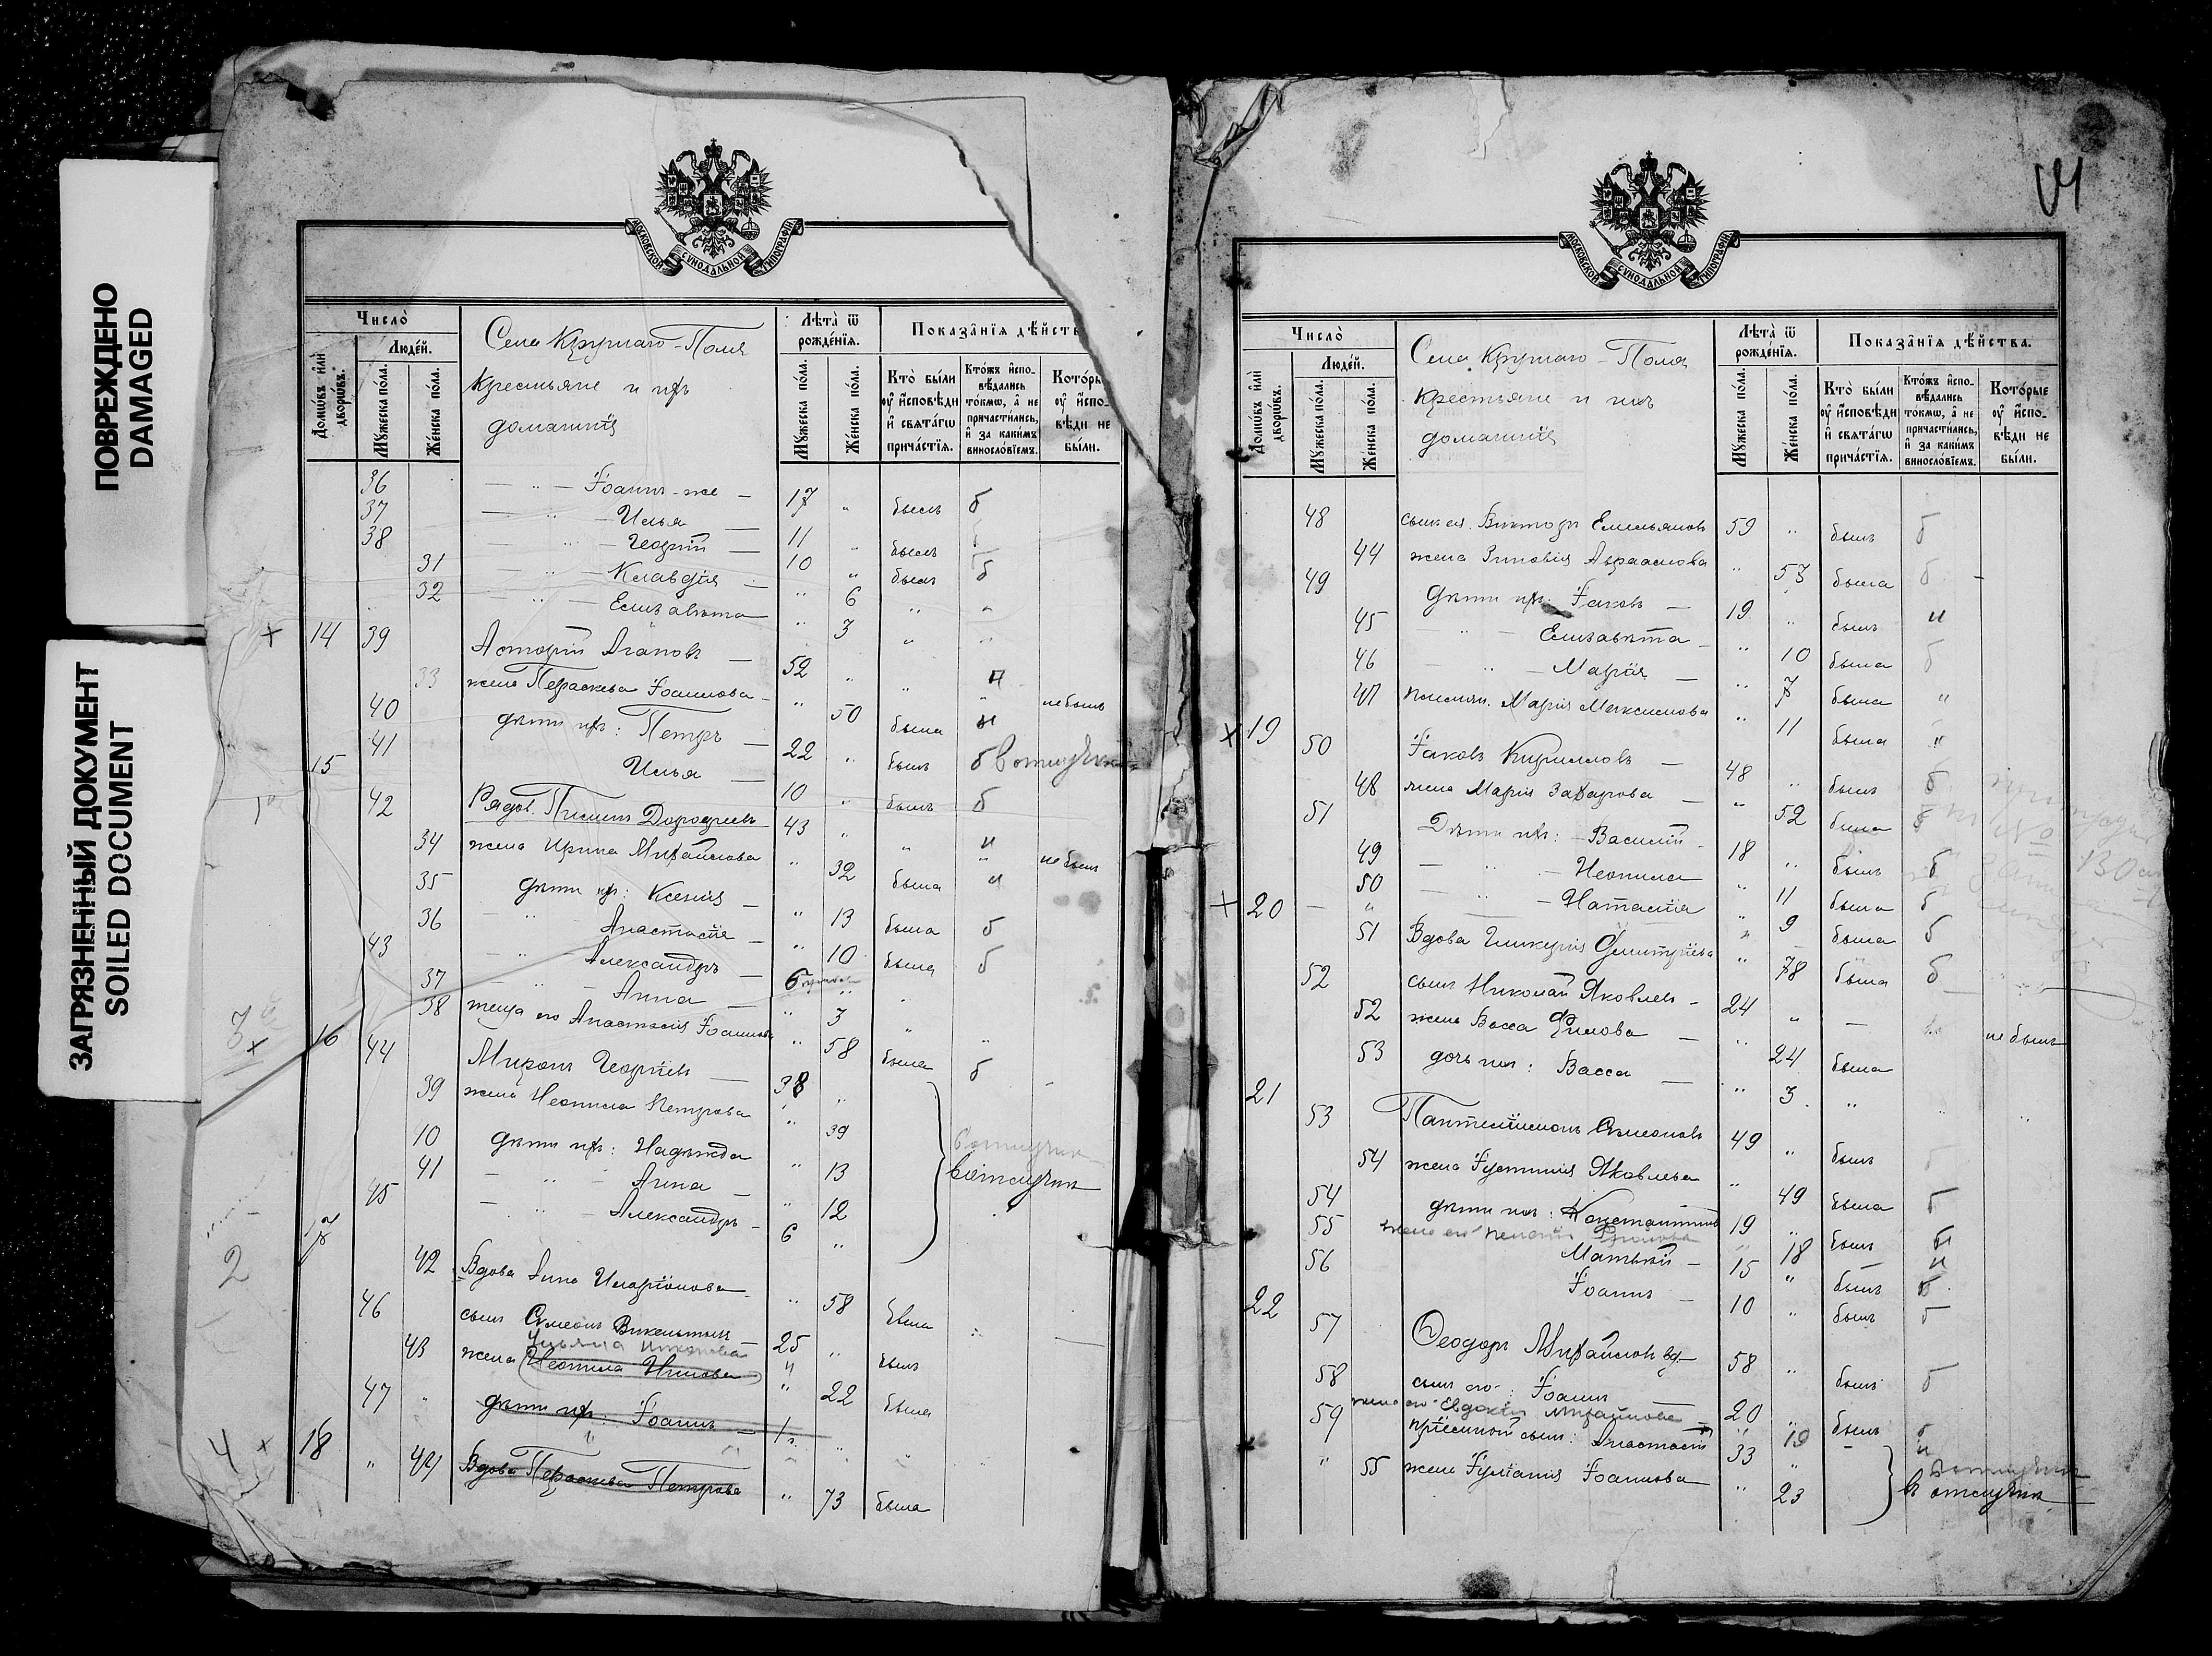 ПОВРЕЖДЕНО
DAMAGED
ЗАГРЯЗНЕННЫЙ ДОКУМЕНТ
SOILED DOCUMENT
МОСКОВСКОЙ СѴНОДАЛЬНОЙ ТИПОГРАФІИ.
Число̀
Домѡ́въ и҆лѝ дворѡ́въ.
Люде́й.
Мꙋ́жеска по́ла.
Же́нска по́ла.
Села Круглаго-Поля
Крестьяне и ихъ
домашніе
Лѣта̀ ѿ рожде́нїѧ.
Мꙋ́жеска по́ла.
Же́нска по́ла.
Показа̑нїѧ дѣ́йств
Кто̀ бы́ли оу҆ и҆сповѣ́ди и҆ свѧта́гѡ прича́стїѧ.
Кто́жъ и҆спо-вѣ́дались то́кмѡ, а҆ не причасти́лись, и҆ за каки́мъ виносло́вїемъ.
Кото́ры оу҆ и҆спо-вѣ́ди не бы́ли.
36 — " — Іоаннъ-же — 17 " былъ б
37 — " — Илья — 11 " былъ
38 — " — Георгій — 10 " былъ б
31 — " — Клавдія — " 6 " "
32 — " — Елизавета " 3 " "
14 39 Астерій Агаповъ — 52 " " н не былъ
33 жена Параскева Іоаннова — " 50 была н
40 дѣти ихъ: Петръ — 22 " былъ б в отлучкѣ
41 Илья — 10 " былъ б
15 42 Рядов. Пименъ Дорофеевъ 43 " " н не былъ
34 жена Ирина Михайлова " 32 была н
35 дѣти ихъ: Ксенія — " 13 была б
36 — " Анастасія — " 10 была б
43 — " — Александръ — 6 " "
37 — " — Анна — " 3 " "
38 теща его Анастасія Іоаннова " 58 была б
16 44 Миронъ Георгіевъ — 38 "
39 жена Неонила Петрова " 39
40 дѣти ихъ: Надежда " 13 в отлучкѣ
41 — " — Анна — " 12
45 — " — Александръ — 6 "
17 42 Вдова Анна Иларіонова " 58 была
46 сынъ Симеонъ Викентьевъ — 25 " былъ
Ульяна
43 жена Неонила Нилова " 22 была
47 " дѣти ихъ: Іоаннъ — 1 г. " "
18 " 44 Вдова Параскева Петрова " 73 была
3
2
4
МОСКОВСКОЙ СѴНОДАЛЬНОЙ ТИПОГРАФІИ.
Число̀
Домѡ́въ и҆лѝ дворѡ́въ.
Люде́й.
Мꙋ́жеска по́ла.
Же́нска по́ла.
Села Круглаго-Поля
Крестьяне и ихъ
домашніе
Лѣта̀ ѿ рожде́нїѧ.
Мꙋ́жеска по́ла.
Же́нска по́ла.
Показа̑нїѧ дѣ́йства.
Кто̀ бы́ли оу҆ и҆сповѣ́ди и҆ свѧта́гѡ прича́стїѧ.
Кто́жъ и҆спо-вѣ́дались то́кмѡ, а҆ не причасти́лись, и҆ за каки́мъ виносло́вїемъ.
Кото́рые оу҆ и҆спо-вѣ́ди не бы́ли.
48 сынъ ея Викторъ Емельяновъ 59 " былъ б
44 жена Зиновія Авраамова " 53 была б
49 дѣти ихъ: Іаковъ — 19 " былъ н
45 " — Елизавета — " 10 была б
46 — " — Марія — " 7 была "
47 племян. Марія Максимова " 11 была "
19 50 Іаковъ Кирилловъ — 48 " былъ б
48 жена Марія Захарова — " 52 была б
51 Дѣти ихъ: — Василій — 18 " былъ б
49 — " — Неонила " 11 была б
50 — " — Наталія " 9 была б
20 51 Вдова Гликерія Димитріева " 78 была б
52 сынъ Николай Яковлевъ — 24 " — не былъ
52 жена Васса Филова — " 24 была
53 дочь ихъ: Васса — " 3 " "
21 53 Пантелеимонъ Симеоновъ 49 " былъ б
54 жена Іустинія Яковлева " 49 была б
54 дѣти ихъ: Константинъ 19 " былъ н
жена его 18 н
55 Матѳей — 15 " былъ б
56 Іоаннъ — 10 " былъ б
22 57 Ѳеодоръ Михайловъ вд. — 58 " былъ б
58 сынъ его: Іоаннъ — 20 " былъ б
жена его Евдокія Михайлова " 19 н
59 пріемной сынъ: Анастасій 33 " в отлучкѣ
" 55 жена Іуліанія Іоаннова " 23 въ отлучкѣ